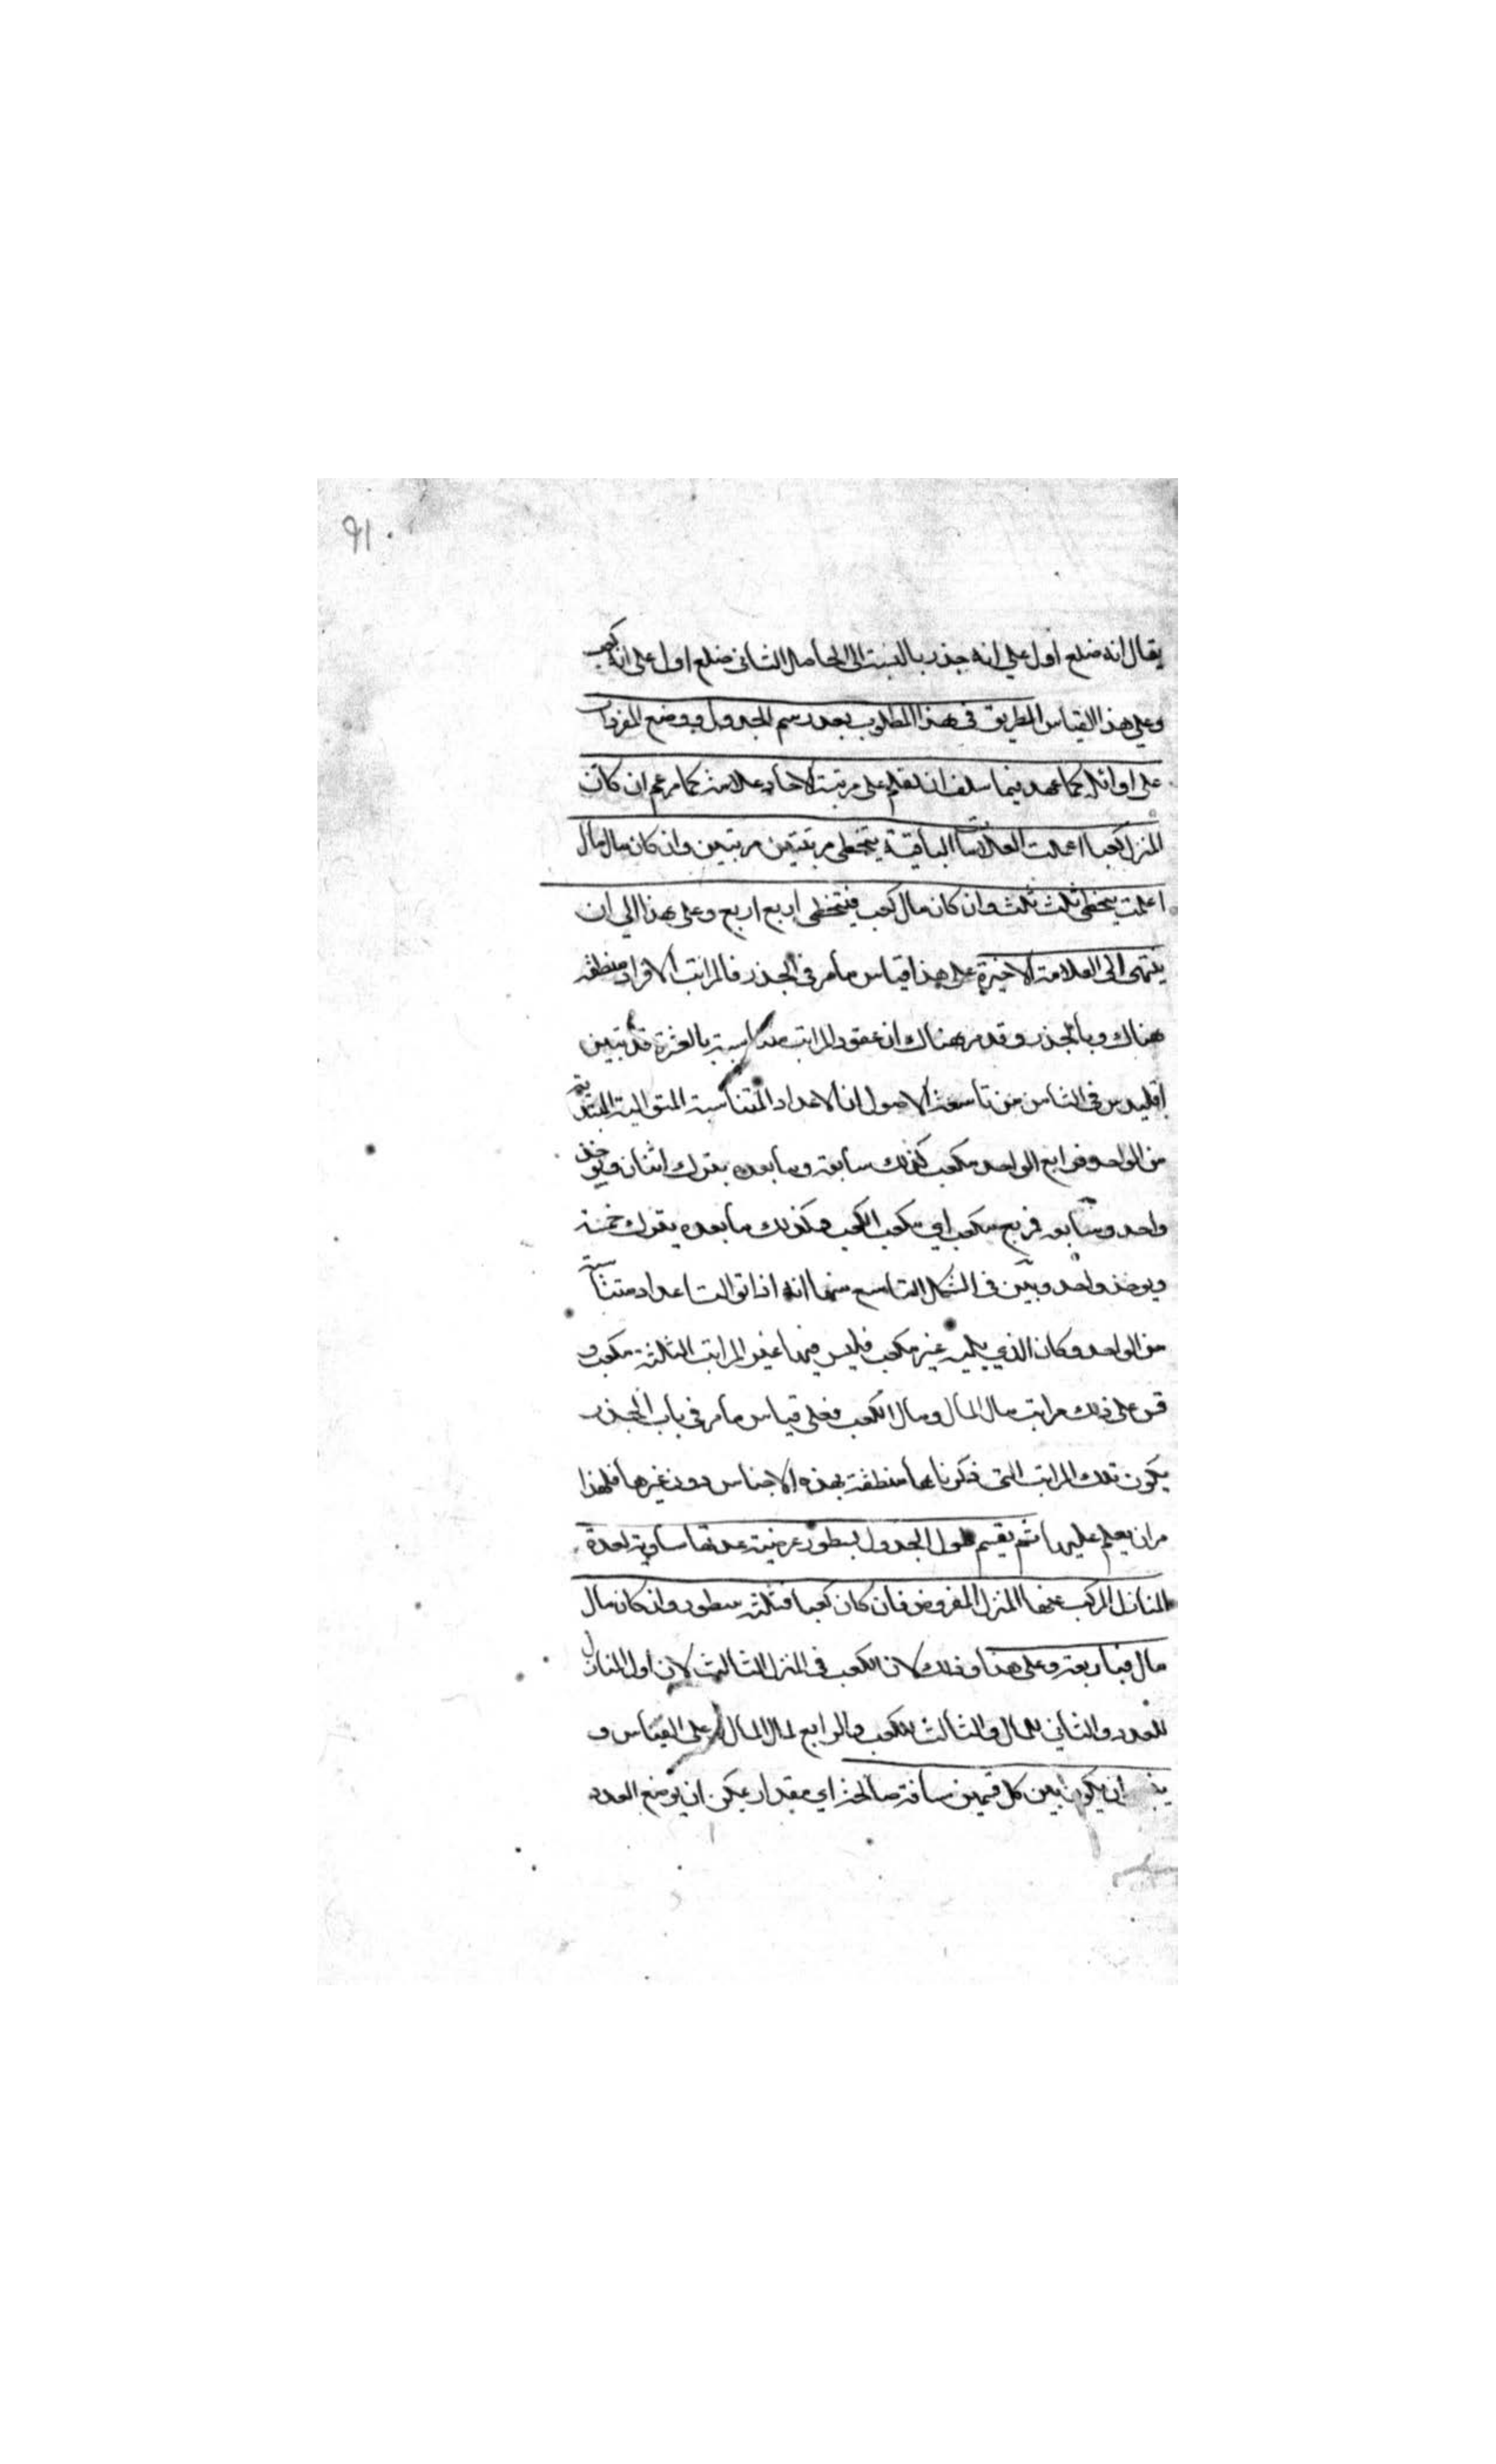 ٩١
يقال انه ضلع اول على انه جذر بالنسبت الى الحاصل الثانى ضلع اول على انه كعب
وعلى هذا القياس الطريق فى هذا المطلوب بعد رسم الجدول ووضع المفردات
على اوائله كما عهد فيما سلف ان تعلم على مرتبة الاحاد علامة كما مر ثم ان كان
المنزل كعبا اعلمت العلامات الباقية بتخطى مرتبتين مرتبتين وان كان مال مال
اعلمت بتخطى ثلث ثلث وان كان مال كعب فبتخطى اربع اربع وعلى هذا الى ان
ينتهى الى العلامة الاخيرة على هذا قياس ما مر فى الجذر فالمراتب الافراد منطقه
هناك وبالجذر وقد مر هناك ان عقود المراتب متناسبة بالعشرة قد تبين
اقليدس فى الثامن من تاسعة الاصول ان الاعداد المتناسبة المتوالية المبتدئة
من الواحد فرابع الواحد مكعب كذلك سابعه وما بعده بترك اثنان ويؤخذ
واحد وسابعه فربع مكعب اى مكعب الكعب وكذلك ما بعده بترك خمسة
ويوخذ واحد وبين فى الشكل التاسع منها انه اذا توالت اعداد متناسبة
من الواحد وكان الذي يليه غير مكعب فليس فيها غير المراتب الثلثة مكعب و
قس على ذلك مراتب مال المال ومال الكعب فعلى قياس ما مر فى باب الجذر
يكون تلك المراتب التى ذكرناها منطقة بهذه الاجناس دون غيرها فلهذا
مر ان يعلم عليها ثم يقسم طول الجدول بسطور عرضية عدتها مساوية لعدة
المنازل المركب عنها المنزل المفروض فان كان كعبا فثلثه سطور وان كان مال
مال فباربعة وعلى هذا وذلك لان الكعب فى المنزل الثالث لان اول المنازل
للعدد والثانى للمال والثالث للكعب والرابع لمال المال على القياس و
ان يكون بين كل قسمين مسافة صالحة اي مقدار يمكن ان يوضع العدد